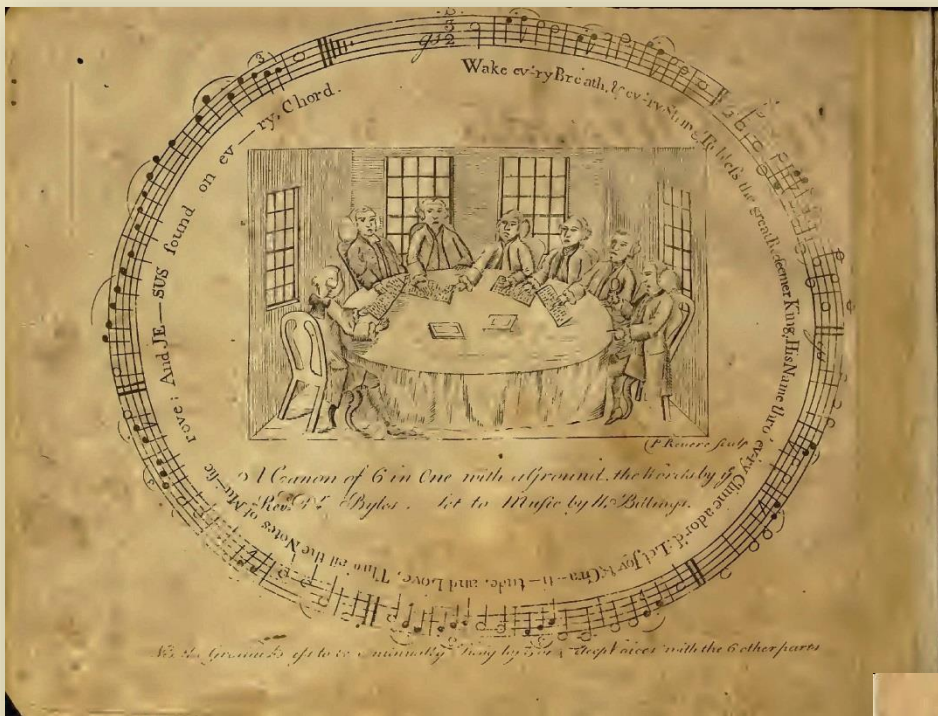 Wake ev'ry Breath, & ev'ry String, To bless the great Redeemer King, His Name thro' ev'ry Clime ador'd: Let Joy & Gra--ti--tude, and Love, Thro' all the Notes of Mu--sic rove; And JE--SUS found on ev--ry, Chord.
P Revere Sculp
A Canon of 6 in One with a Ground, the Words by ye
Revd. Dr. Byles. Set to Music by W. Billings.
the Ground is to be continually Sung by Deep Voices with the 6 other parts